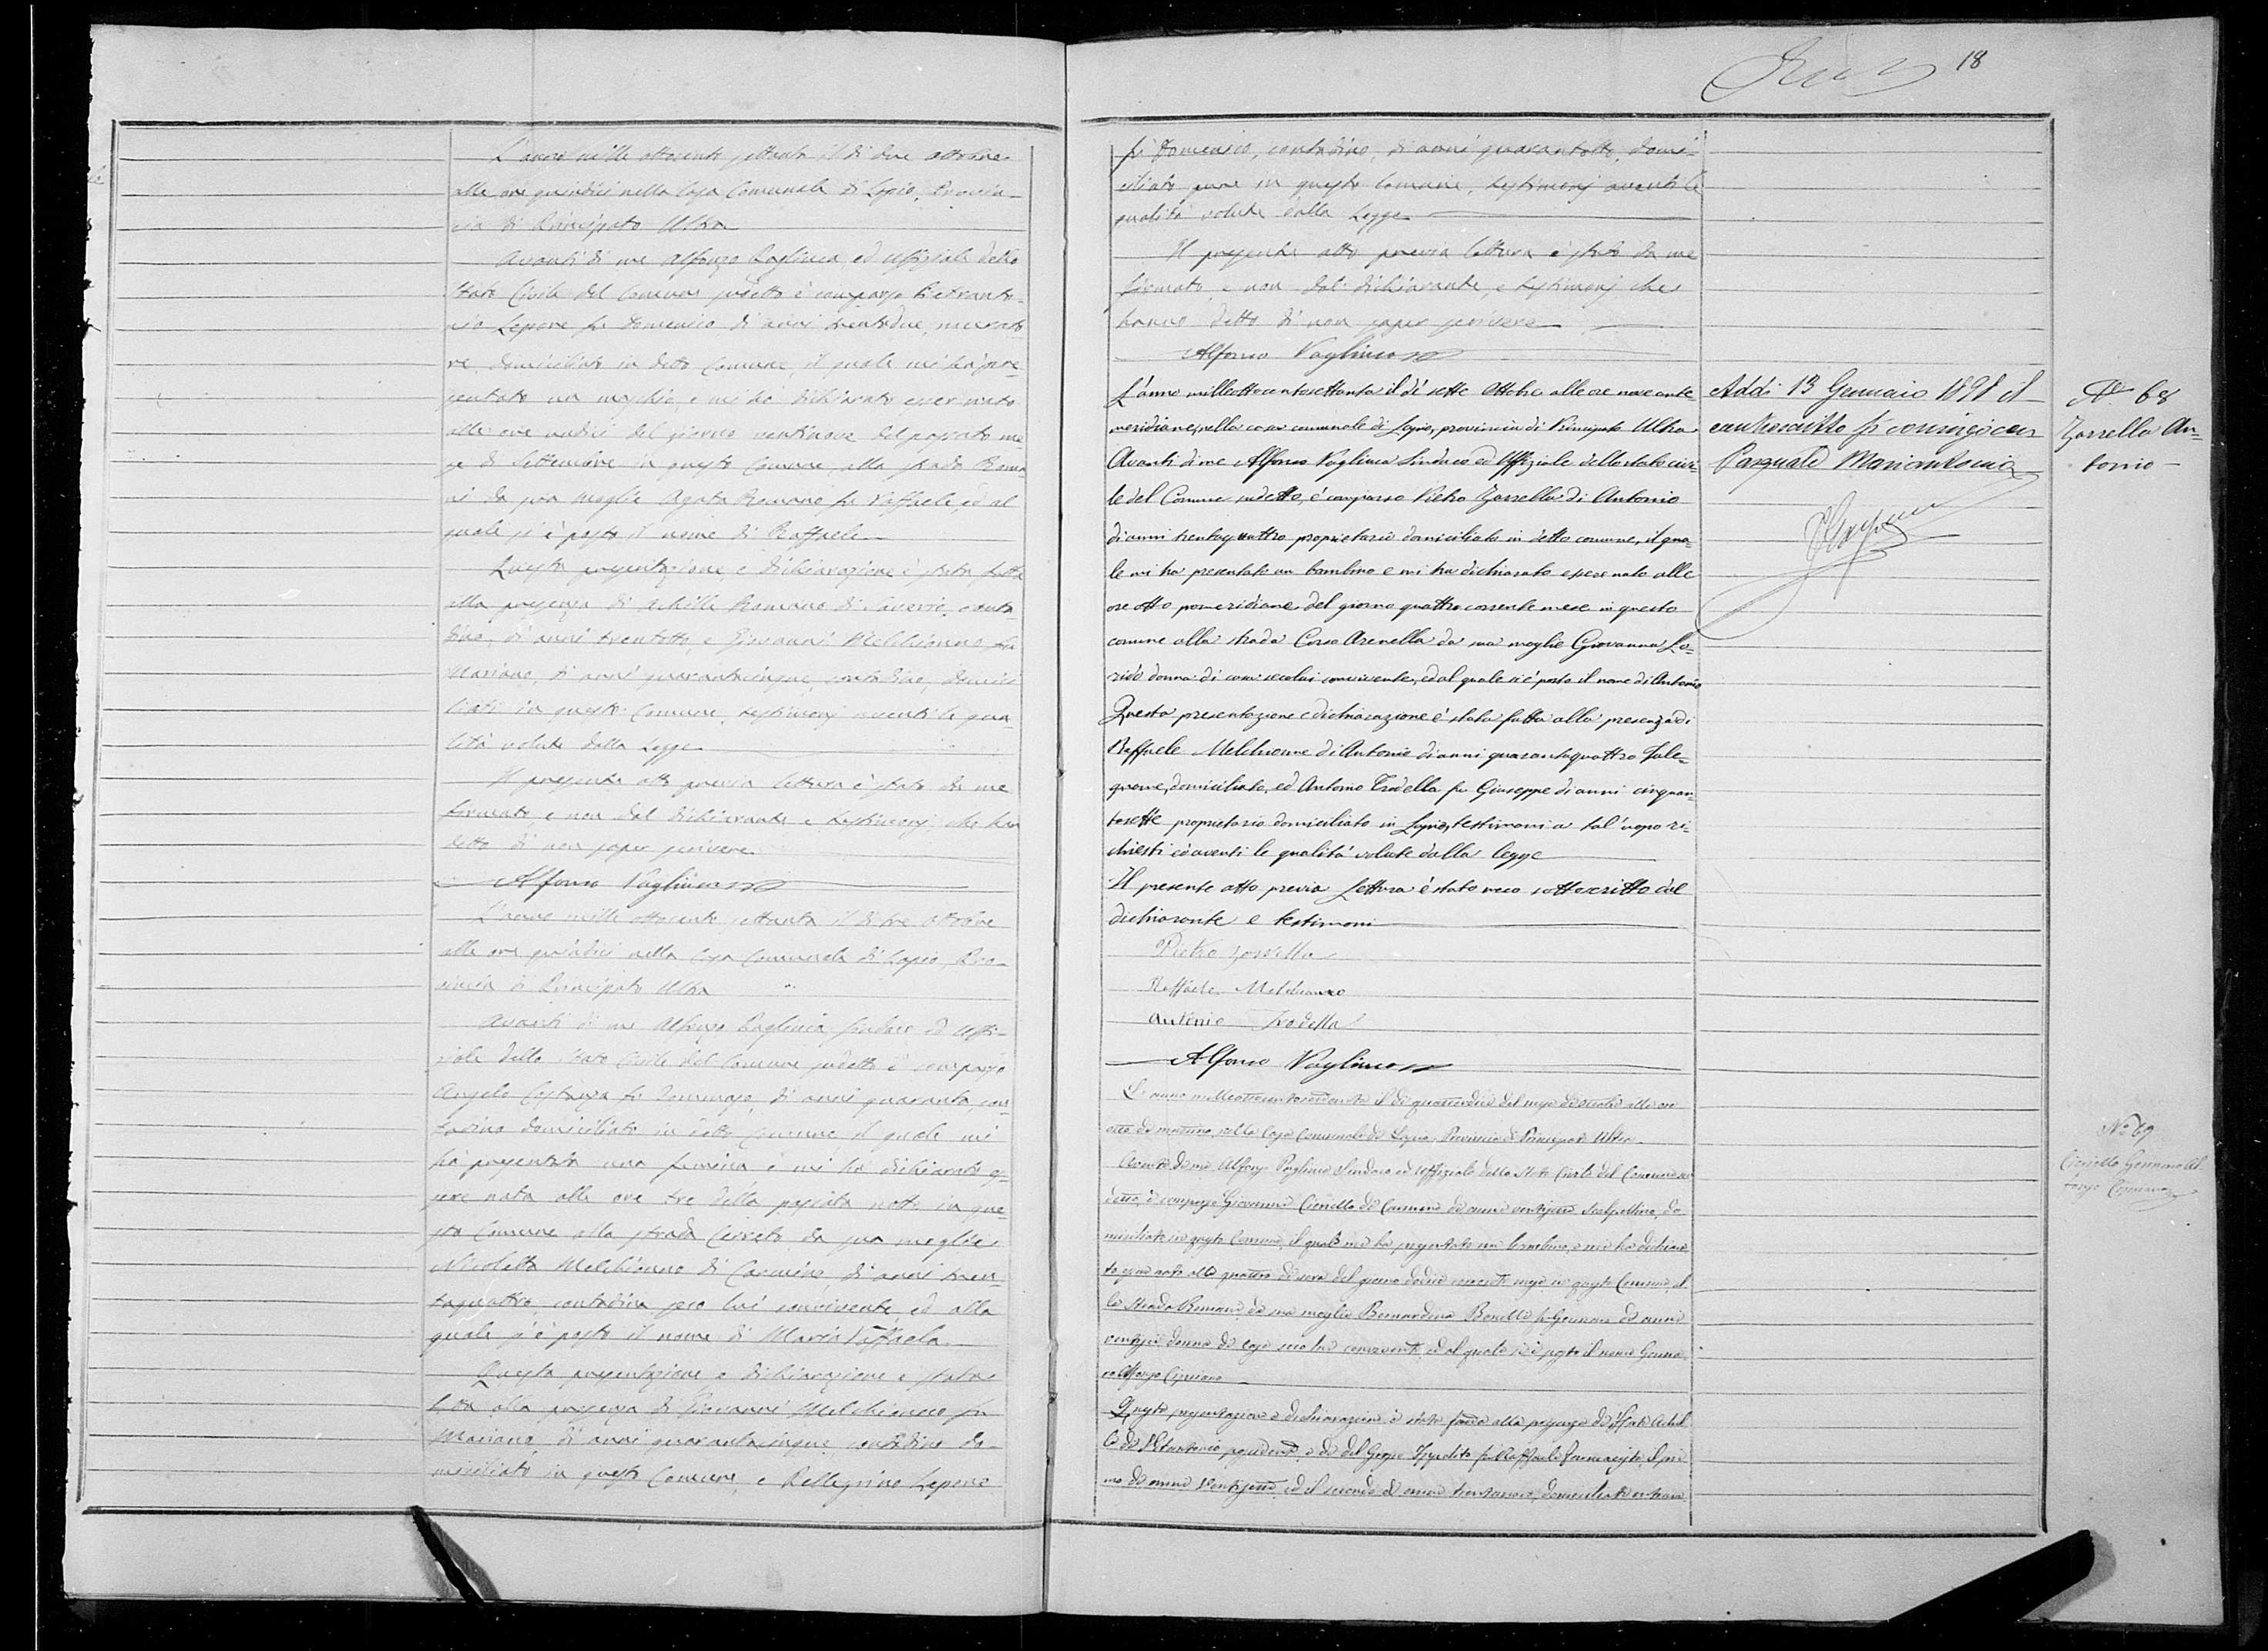 L'anno mille ottocento settanta il dì due ottobre
alle ore quindici nella Casa Comunale di Lapio, Provin-
cia di Principato Ultra
Avanti di me Alfonzo Paglinca, ed Uffiziale dello
Stato Civile del Comune sudetto è comparso Pietranto-
nio Lepore fu Domenico di anni trentadue, murato
re, domiciliato in detto Comune, il quale mi ha pre-
sentato un maschio, e mi ha dichiarato esser nato
alle ore undici del giorno ventinove del passato me
se di Settembre in questo Comune, alla strada Roma
ni da sua moglie Agata Romano fu Raffaele, ed al
quale si è posto il nome di Raffaele
Questa presentazione, e dichiarazione è stata fatta
alla presenza di Achille Romano di Saverio, conta
dino, di anni trentotto, e Giovanni Melchionno fu
Mariano, di anni quarantacinque, contadino, domici
liati in questo Comune, testimonj aventi le qua
lità volute dalla Legge
Il presente atto previa lettura è stato da me
firmato e non dal dichiarante e testimonj che han
detto di non saper scrivere
Alfonso Paglinca
L'anno mille ottocento settanta il dì tre ottobre
alle ore quindici nella Casa Comunale di Lapio, Pro-
vincia di Principato Ultra
Avanti di me Alfonzo Paglinca Sindaco ed Uffi-
ziale dello Stato Civile del Comune sudetto è comparso
Angelo Costanza fu Tommaso, di anni quaranta, con
tadino domiciliato in detto Comune il quale mi
ha presentata una femina e mi ha dichiarato es-
sere nata alle ore tre della passata notte in que-
sto Comune alla strada Cerreto da sua moglie
Nicoletta Melchionno di Carmine, di anni tren
taquattro, contadina seco lui convivente, ed alla
quale s'è posto il nome di Maria Raffaela
Questa presentazione e dichiarazione e stata
fatta alla presenza di Giovanni Melchionno fu
Mariano, di anni quarantacinque, contadino do-
miciliato in questo Comune, e Pellegrino Lepore
18
fu Domenico, contadino, di anni quarantotto, domi-
ciliato pure in questo Comune, testimonj aventi le
qualità volute dalla Legge
Il presente atto previa lettura è stato da me
firmato, e non dal dichiarante, e testimonj che
hanno detto di non saper scrivere
Alfonso Paglinca
L'anno milleottocentosettanta il dì sette Ottobre alle ore nove ante
meridiane, nella casa comunale di Lapio, provincia di Principato Ultra
Avanti di me Alfonso Paglinca Sindaco ed Uffiziale dello stato civi-
le del Comune sudetto, é comparso Pietro Zarrella di Antonio
di anni trentaquattro proprietario domiciliato in detto comune, il qua-
le mi ha presentato un bambino e mi ha dichiarato essere nato alle
ore otto pomeridiane, del giorno quattro corrente mese in questo
comune alla strada Corso Arenella da sua moglie Giovanna Lo-
rido donna di casa secolui convivente, ed al quale si é posto il nome di Antonio
Questa presentazione e dichiarazione é stata fatta alla presenza di
Raffaele Melchionne di Antonio di anni quarantaquattro fale-
gname, domiciliato, ed Antonio Trodella fu Giuseppe di anni cinquan
tasette proprietario domiciliato in Lapio, testimoni a tal' uopo ri-
chiesti ed aventi le qualitá volute dalla legge
Il presente atto previa lettura é stato meco sottoscritto dal
dichiarante e testimoni
Pietro Zarrella
Raffaele Melchionno
Antonio Trodella
Alfonso Paglinca
Addi 13 Gennaio 1898 il
controscritto si coniugò con
Pasquale Mariantonia
N° 68
Zarrella An-
tonio
L'anno milleottocentosettanta il dì quattordici del mese di ottobre alle ore
otto di mattino, nella Casa Comunale di Lapio, Provincia di Principato Ultra
Avanti di me Alfonso Paglinca Sindaco ed Uffiziale dello Stato Civile del Comune su
detto, è comparso Giovanni Ciriello di Carmine di anni ventisette Scalpellino, do
miciliato in questo Comune, il quale mi ha presentato un bambino, e mi ha dichiara
to esser nato alle quattro di sera del giorno dodici corrente mese in questo Comune, al
la strada Romani, da sua moglie Bernardina Bonelli fu Gennaro di anni
ventisei donna di casa seco lui convivente, ed al quale si è posto il nome Genna
ro Alfonso Cipriano
Questa presentazione e dichiarazione è stata fatta alla presenza di Achil
le di Pietrantonio possidente, e di del Grosso Ippolito fu Raffaele farmacista, il pri
mo di anni ventisette, ed il secondo di anni trentanove, domiciliati entrambi
N° 69
Ciriello Gennaro Al
fonso Cipriano